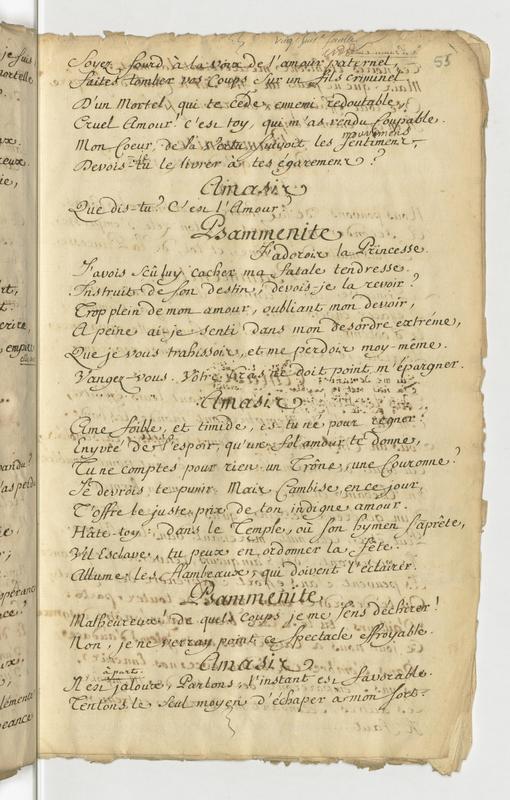 55
Soyez sourd à la voix de l'amour paternel,
Faites tomber vos coups sur un fils criminel.
D'un Mortel, qui te cède, ennemi redoutable,
Cruel Amour! c'est toy, qui m'as rendu coupable.
mouvemens
Mon Coeur, de la vertu suivoit les sentimens,
Devois-tu le livrer à tes égaremens?
Amasis
Que dis-tu? C'est l'Amour?
Psammenite
J'adorois la Princesse.
J'avois sçû luy cacher ma fatale tendresse.
Instruit de son destin, devois-je la revoir?
Trop plein de mon amour, oubliant mon devoir,
A peine ai-je senti dans mon desordre extrême,
Que je vous trahissois, et me perdois moy-même.
Vangez-vous. Votre bras ne doit point m'épargner.
Amasis
Ame foible, et timide, es-tu né pour regner?
Enyvré de l'espoir, qu'un fol amour te donne,
Tu ne comptes pour rien un Trône, une Couronne?
Je devrois te punir. Mais Cambise, en ce jour,
T'offre le juste prix de ton indigne amour.
Hâte-toy: dans le Temple, où son hymen s'aprête,
Vil Esclave, tu peux en ordonner la fête.
Allume les flambeaux, qui doivent l'éclairer.
Psammenite
Malheureux! de quels coups je me sens déchirer!
Non, je ne verray point ce spectacle effroyable.
Amasis
à part.
Il est jaloux, Parlons, l'instant est favorable.
Tentons le seul moyen d'échaper à mon sort.